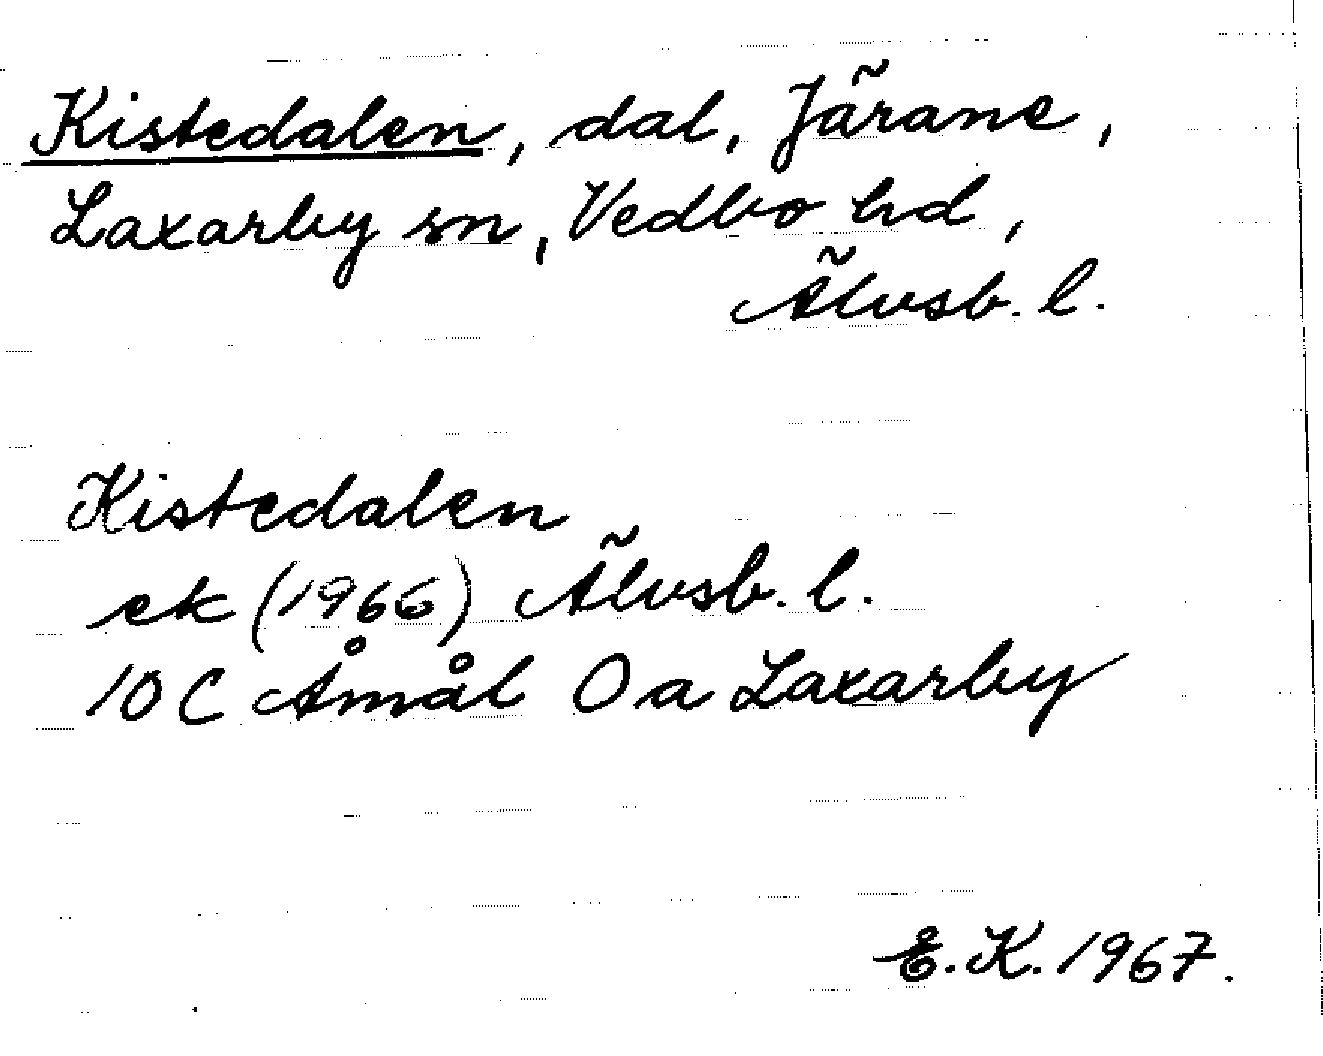 Kistedalen, dal, Järane,
Laxarby sn, Vedbo hd,
Älvsb. l.
Kistedalen
ek (1966) Älvsb. l.
10 C Åmål O a Laxarby
E. K. 1967.